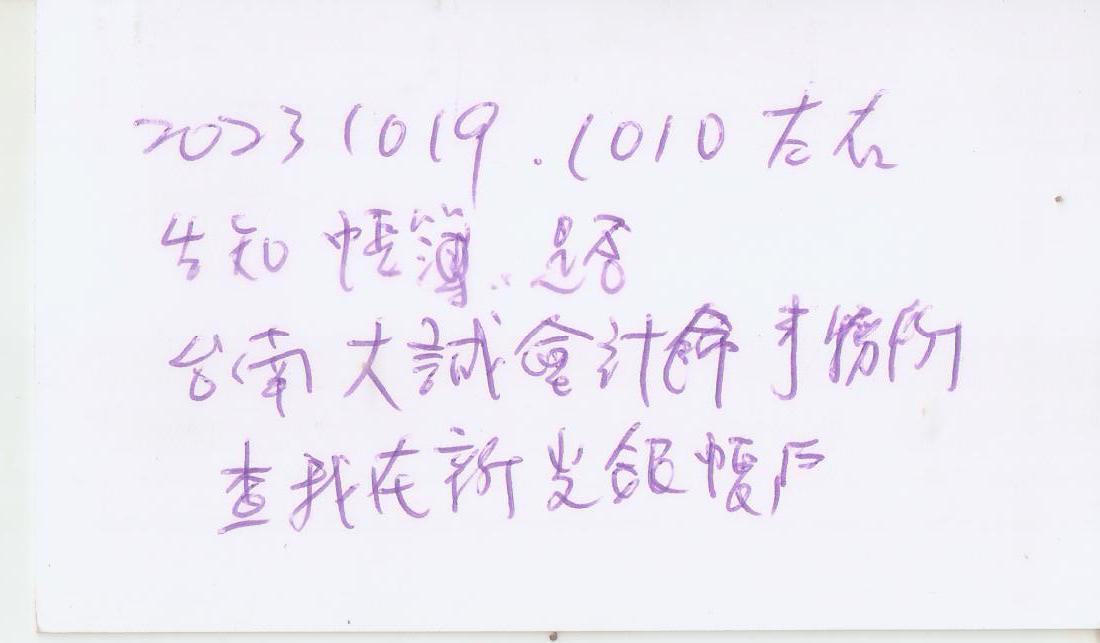 20231019.1010左右
告知 帳簿..是否
台南大誠會計師事務所
查我在新光銀帳戶